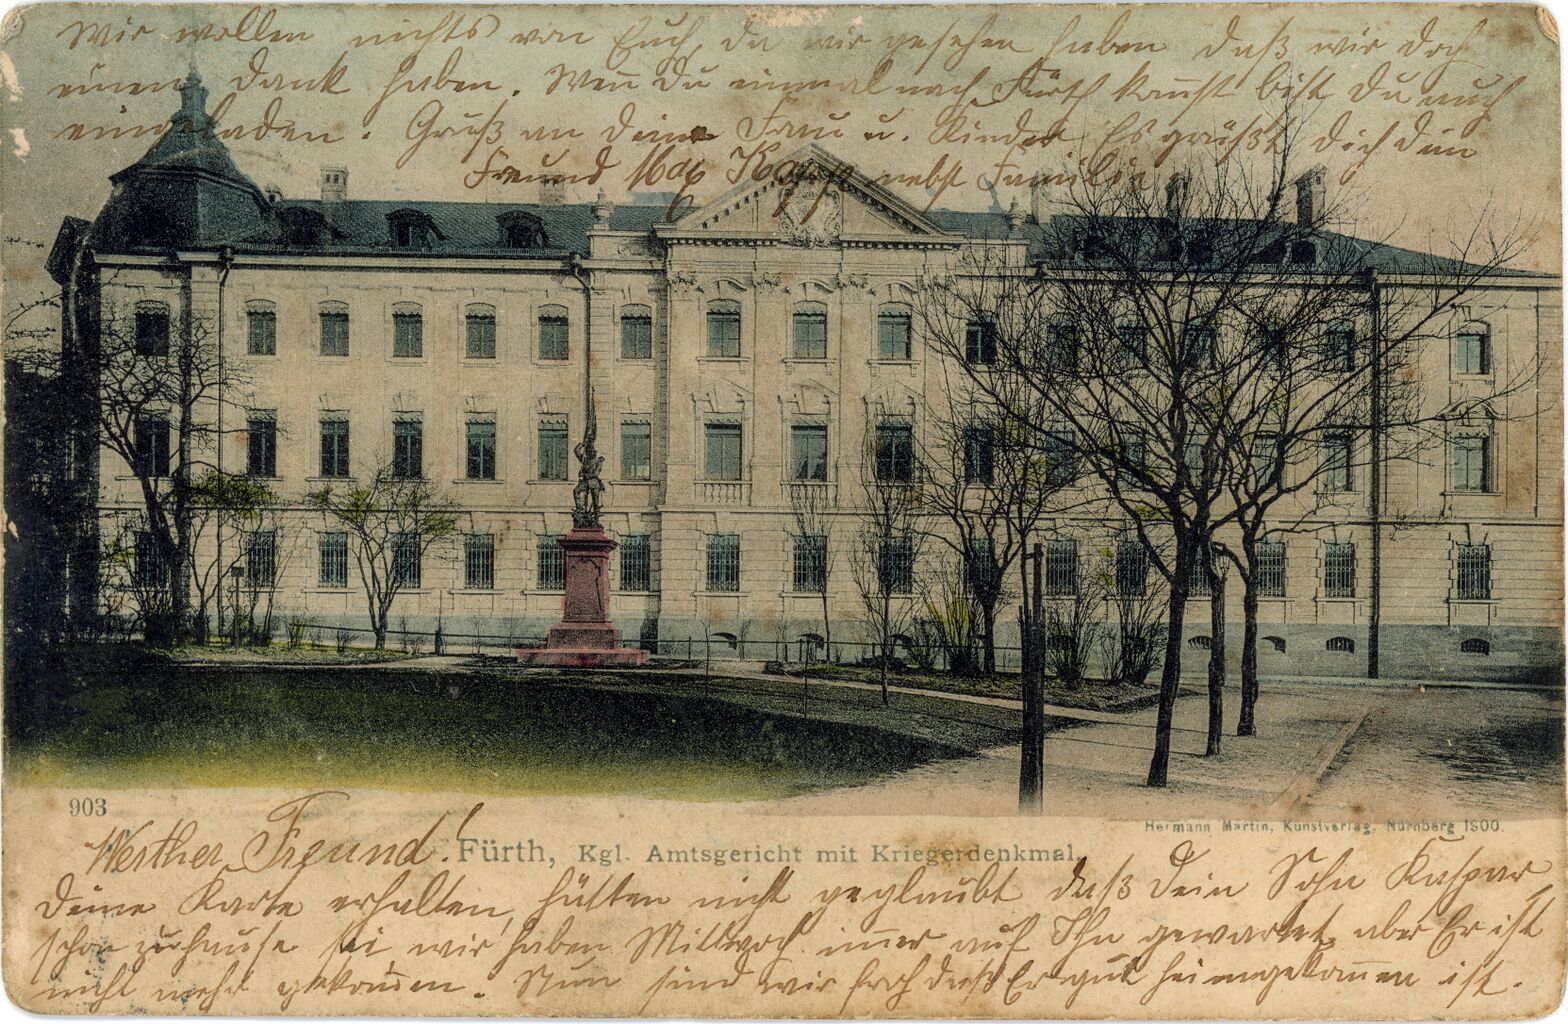 Wir wollen nichts von Euch, da wir gesehen haben daß wir doch
einen Dank haben. Weñ Du einmal nach Fürth kom̃st bist Du auch
eingeladen. Gruß an Deine Frau u. Kinder Es grüßt Dich dein
Freund Max nebst Familie
903
Hermann Martin, Kunstverlag, Nürnberg 1900.
Werther Freund!
Fürth, Kgl. Amtsgericht mit Kriegerdenkmal.
Deine Karte erhalten, hätten nicht geglaubt daß Dein Sohn Kaspar
schon zuhause sei wir haben Mittwoch im̃er auf Ihn gewartet, aber Er ist
nicht mehr gekom̃en. Nun sind wir froh daß Er gut heimgekom̃en ist.